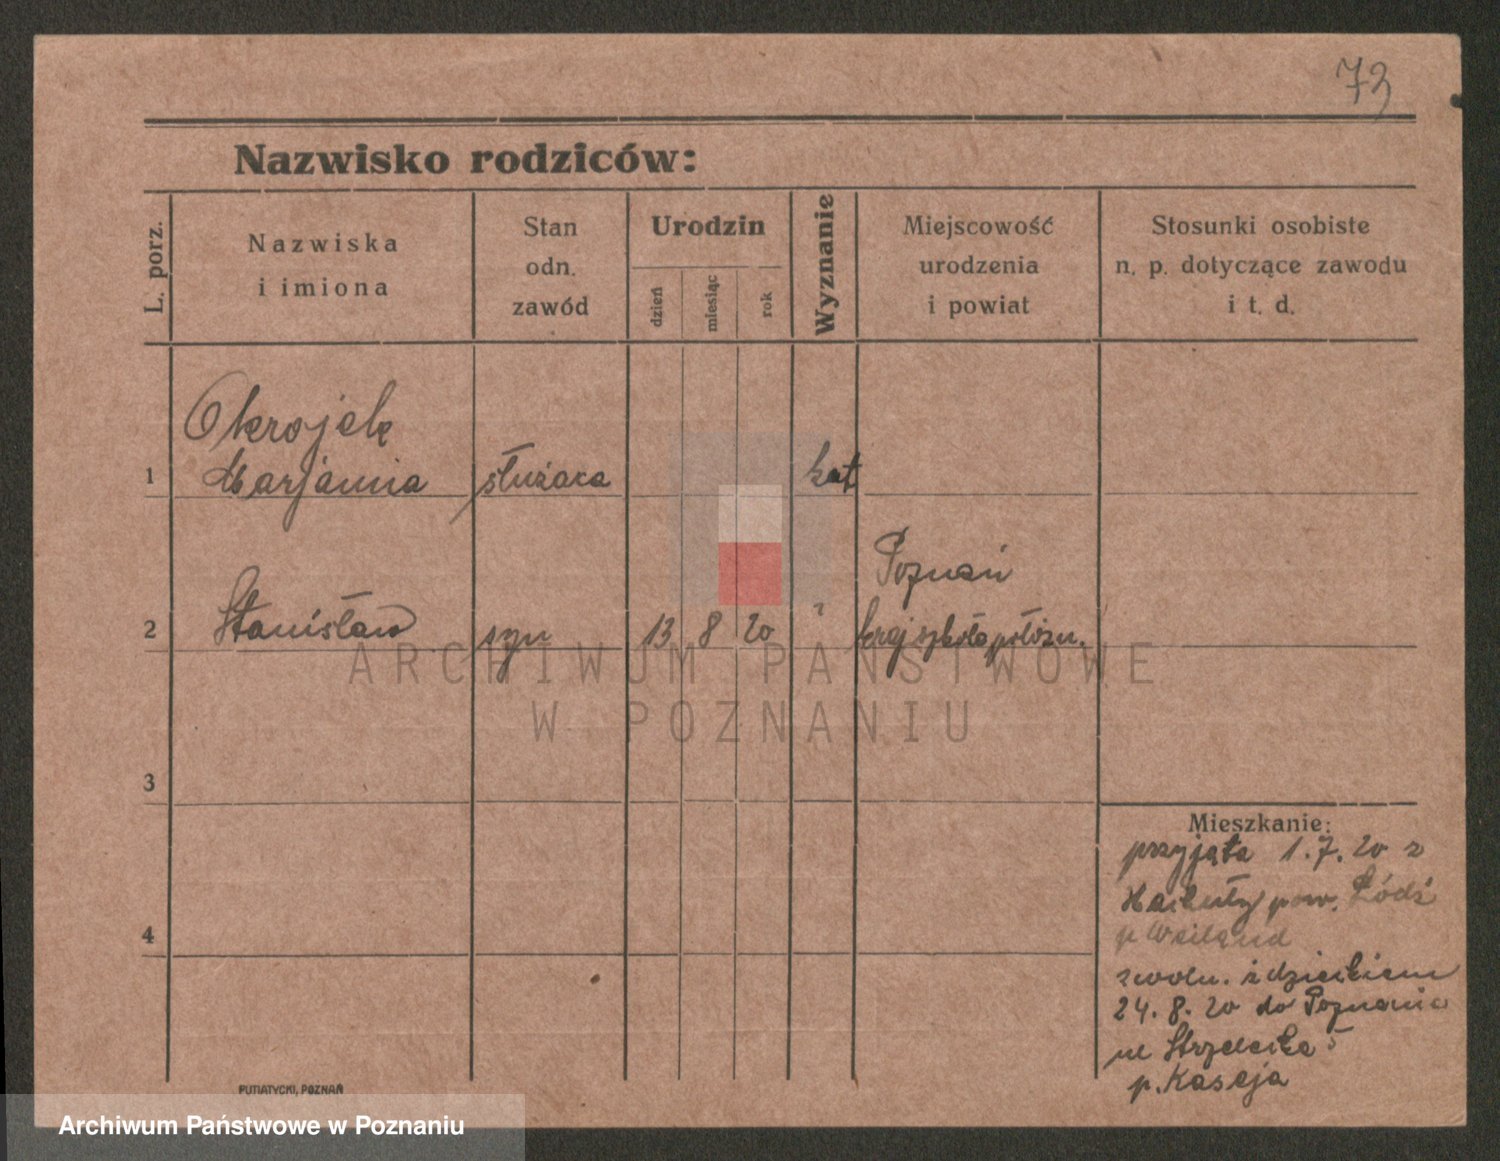 73
Nazwisko rodziców:
L. porz.
Nazwiska
i imiona
Stan
odn.
zawód
Urodzin
dzień
miesiąc
rok
Wyznanie
Miejscowość
urodzenia
i powiat
Stosunki osobiste
n. p. dotyczące zawodu
i t. d.
1
Marjanna
służaca
kat
2
Stanisław
syn
13
8
20
Poznań
kraj szkoła położn.
3
4
Mieszkanie:
przyjęta 1.7.20 z
pow. Łódź
p
zwoln. z dzieckiem
24.8.20 do Poznania
ul Strzelecka 5
p. Kaseja
PUTIATYCKI, POZNAŃ
ARCHIWUM PAŃSTWOWE
W POZNANIU
Archiwum Państwowe w Poznaniu